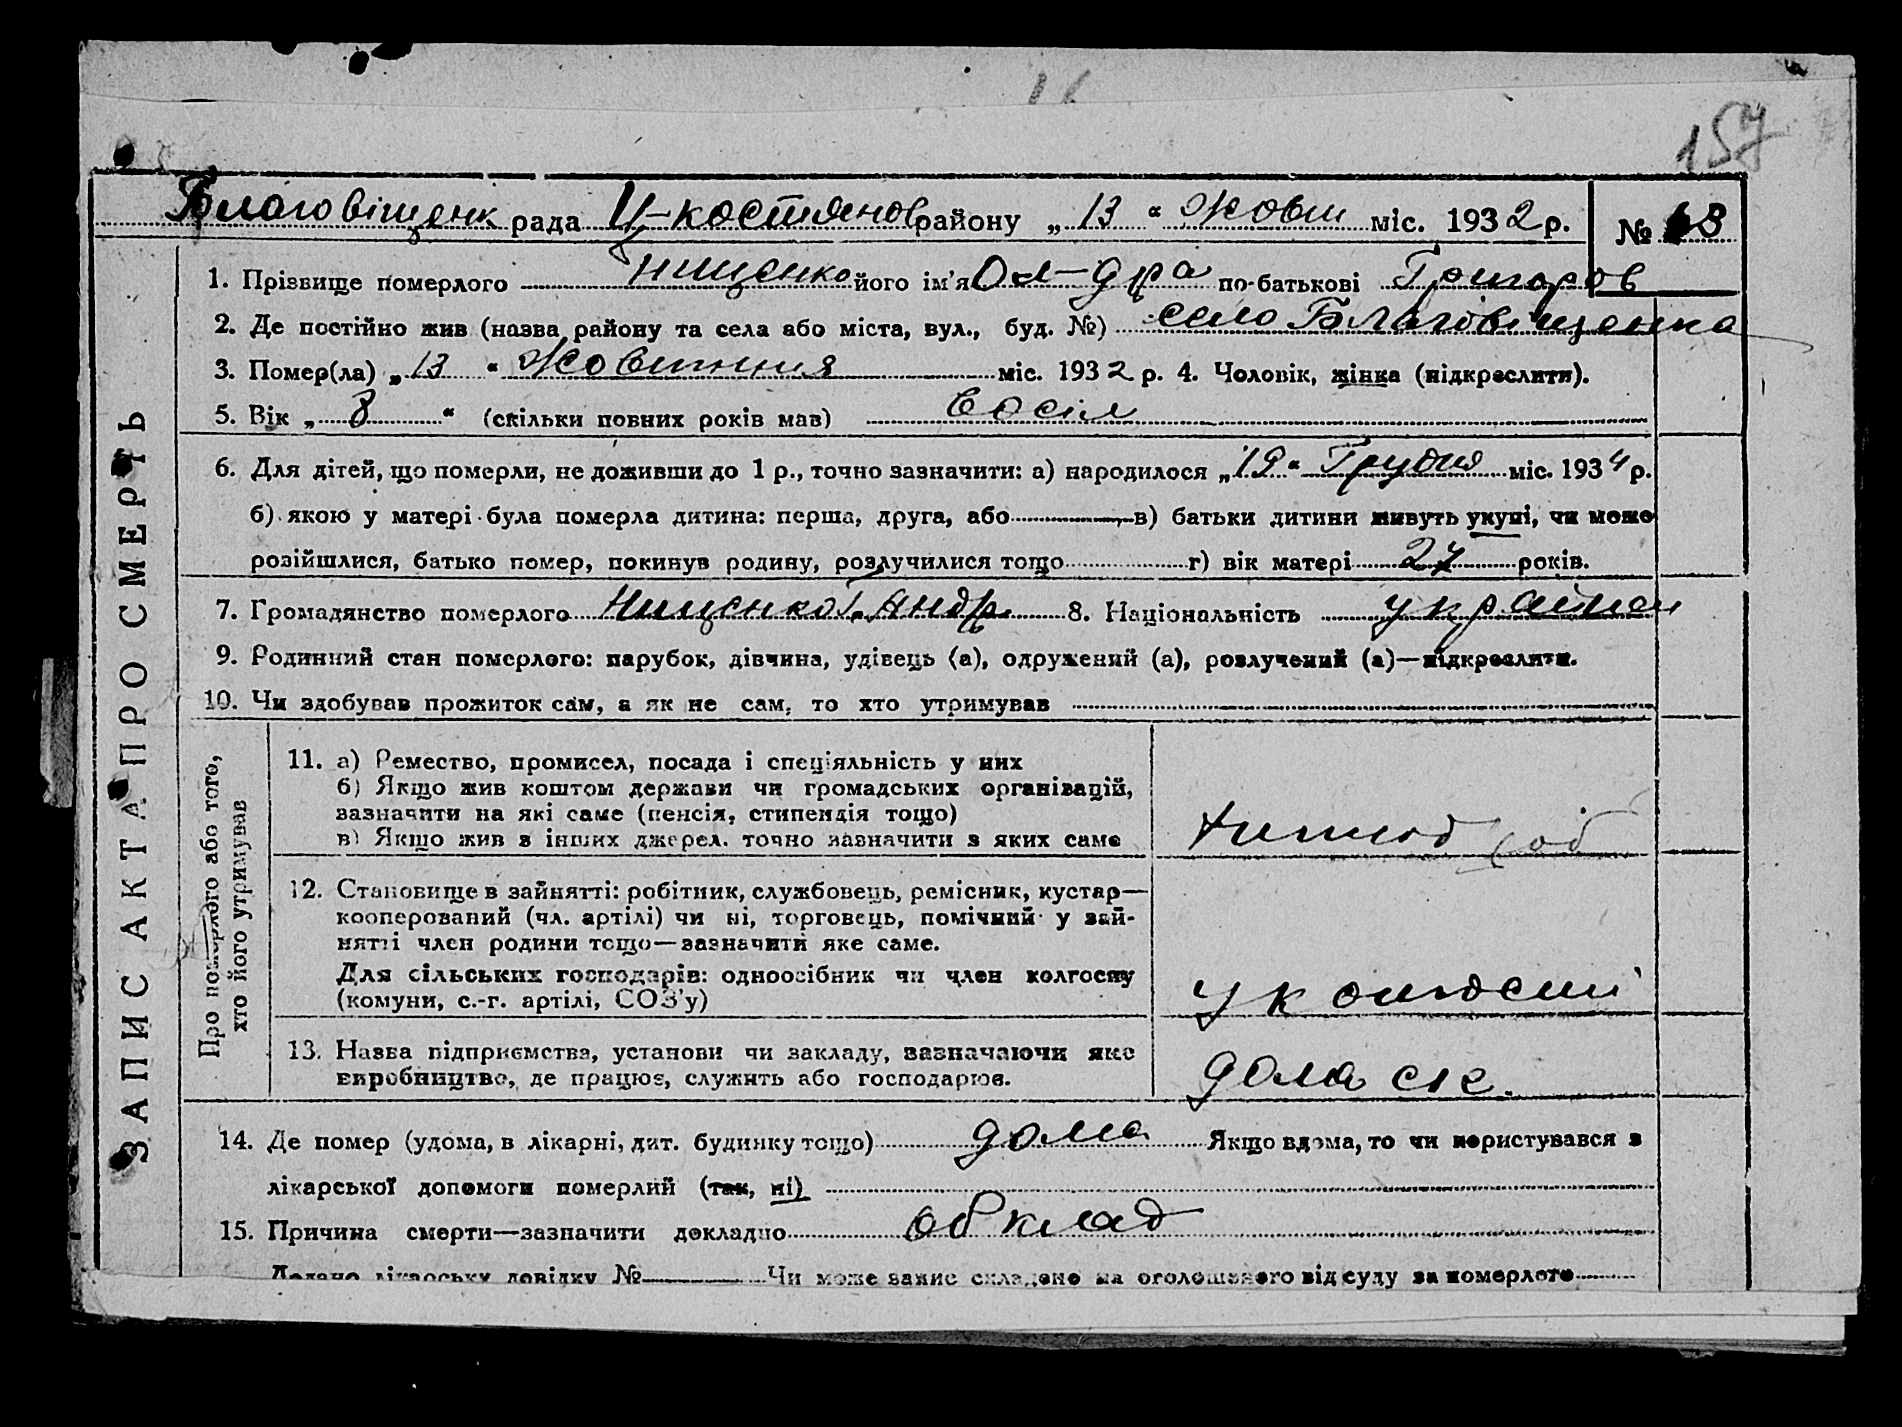 157
Благовіщенк рада Ц-костянов району „ 13 " Жовт міс. 1932 р. № 13
1. Прізвище померлого Нищенко його ім'я Ол-дра по-батькові Григоров
2. Де постійно жив (назва району та села або міста, вул., буд. №) село Благовіщенка
3. Помер(ла) „ 13 " Жовтння міс. 1932 р. 4. Чоловік, жінка (підкреслити).
5. Вік „ 8 " (скільки повних років мав) восім
6. Для дітей, що померли, не доживши до 1 р., точно зазначити: а) народилося „ 19 " Грудня міс. 1934 р.
б) якою у матері була померла дитина: перша, друга, або в) батьки дитини живуть укупі, чи може
розійшлися, батько помер, покинув родину, розлучилися тощо г) вік матері 27 років.
7. Громадянство померлого Нищенко Г. Андр. 8. Національність україн
9. Родинний стан померлого: парубок, дівчина, удівець (а), одружений (а), розлучений (а)—підкреслити.
10. Чи здобував прожиток сам, а як не сам, то хто утримував
ЗАПИС АКТА ПРО СМЕРТЬ
Про померлого або того,
хто його утримував
11. а) Ремество, промисел, посада і спеціяльність у них
б) Якщо жив коштом держави чи громадських організацій,
зазначити на які саме (пенсія, стипендія тощо)
в) Якщо жив з інших джерел, точно зазначити з яких саме
12. Становище в зайнятті: робітник, службовець, ремісник, кустар—
кооперований (чл. артілі) чи ні, торговець, помічний у зай-
нятті член родини тощо—зазначити яке саме.
Для сільських господарів: одноосібник чи член колгоспу
(комуни, с.-г. артілі, СОЗ'у)
13. Назва підприємства, установи чи закладу, зазначаючи яке
виробництво, де працює, служить або господарює.
14. Де помер (удома, в лікарні, дит. будинку тощо) дома Якщо вдома, то чи користувався з
лікарської допомоги померлий (так, ні)
15. Причина смерти—зазначити докладно обклад
Додано лікарську довідку № Чи може запис складено на оголошеного від суду за померлого